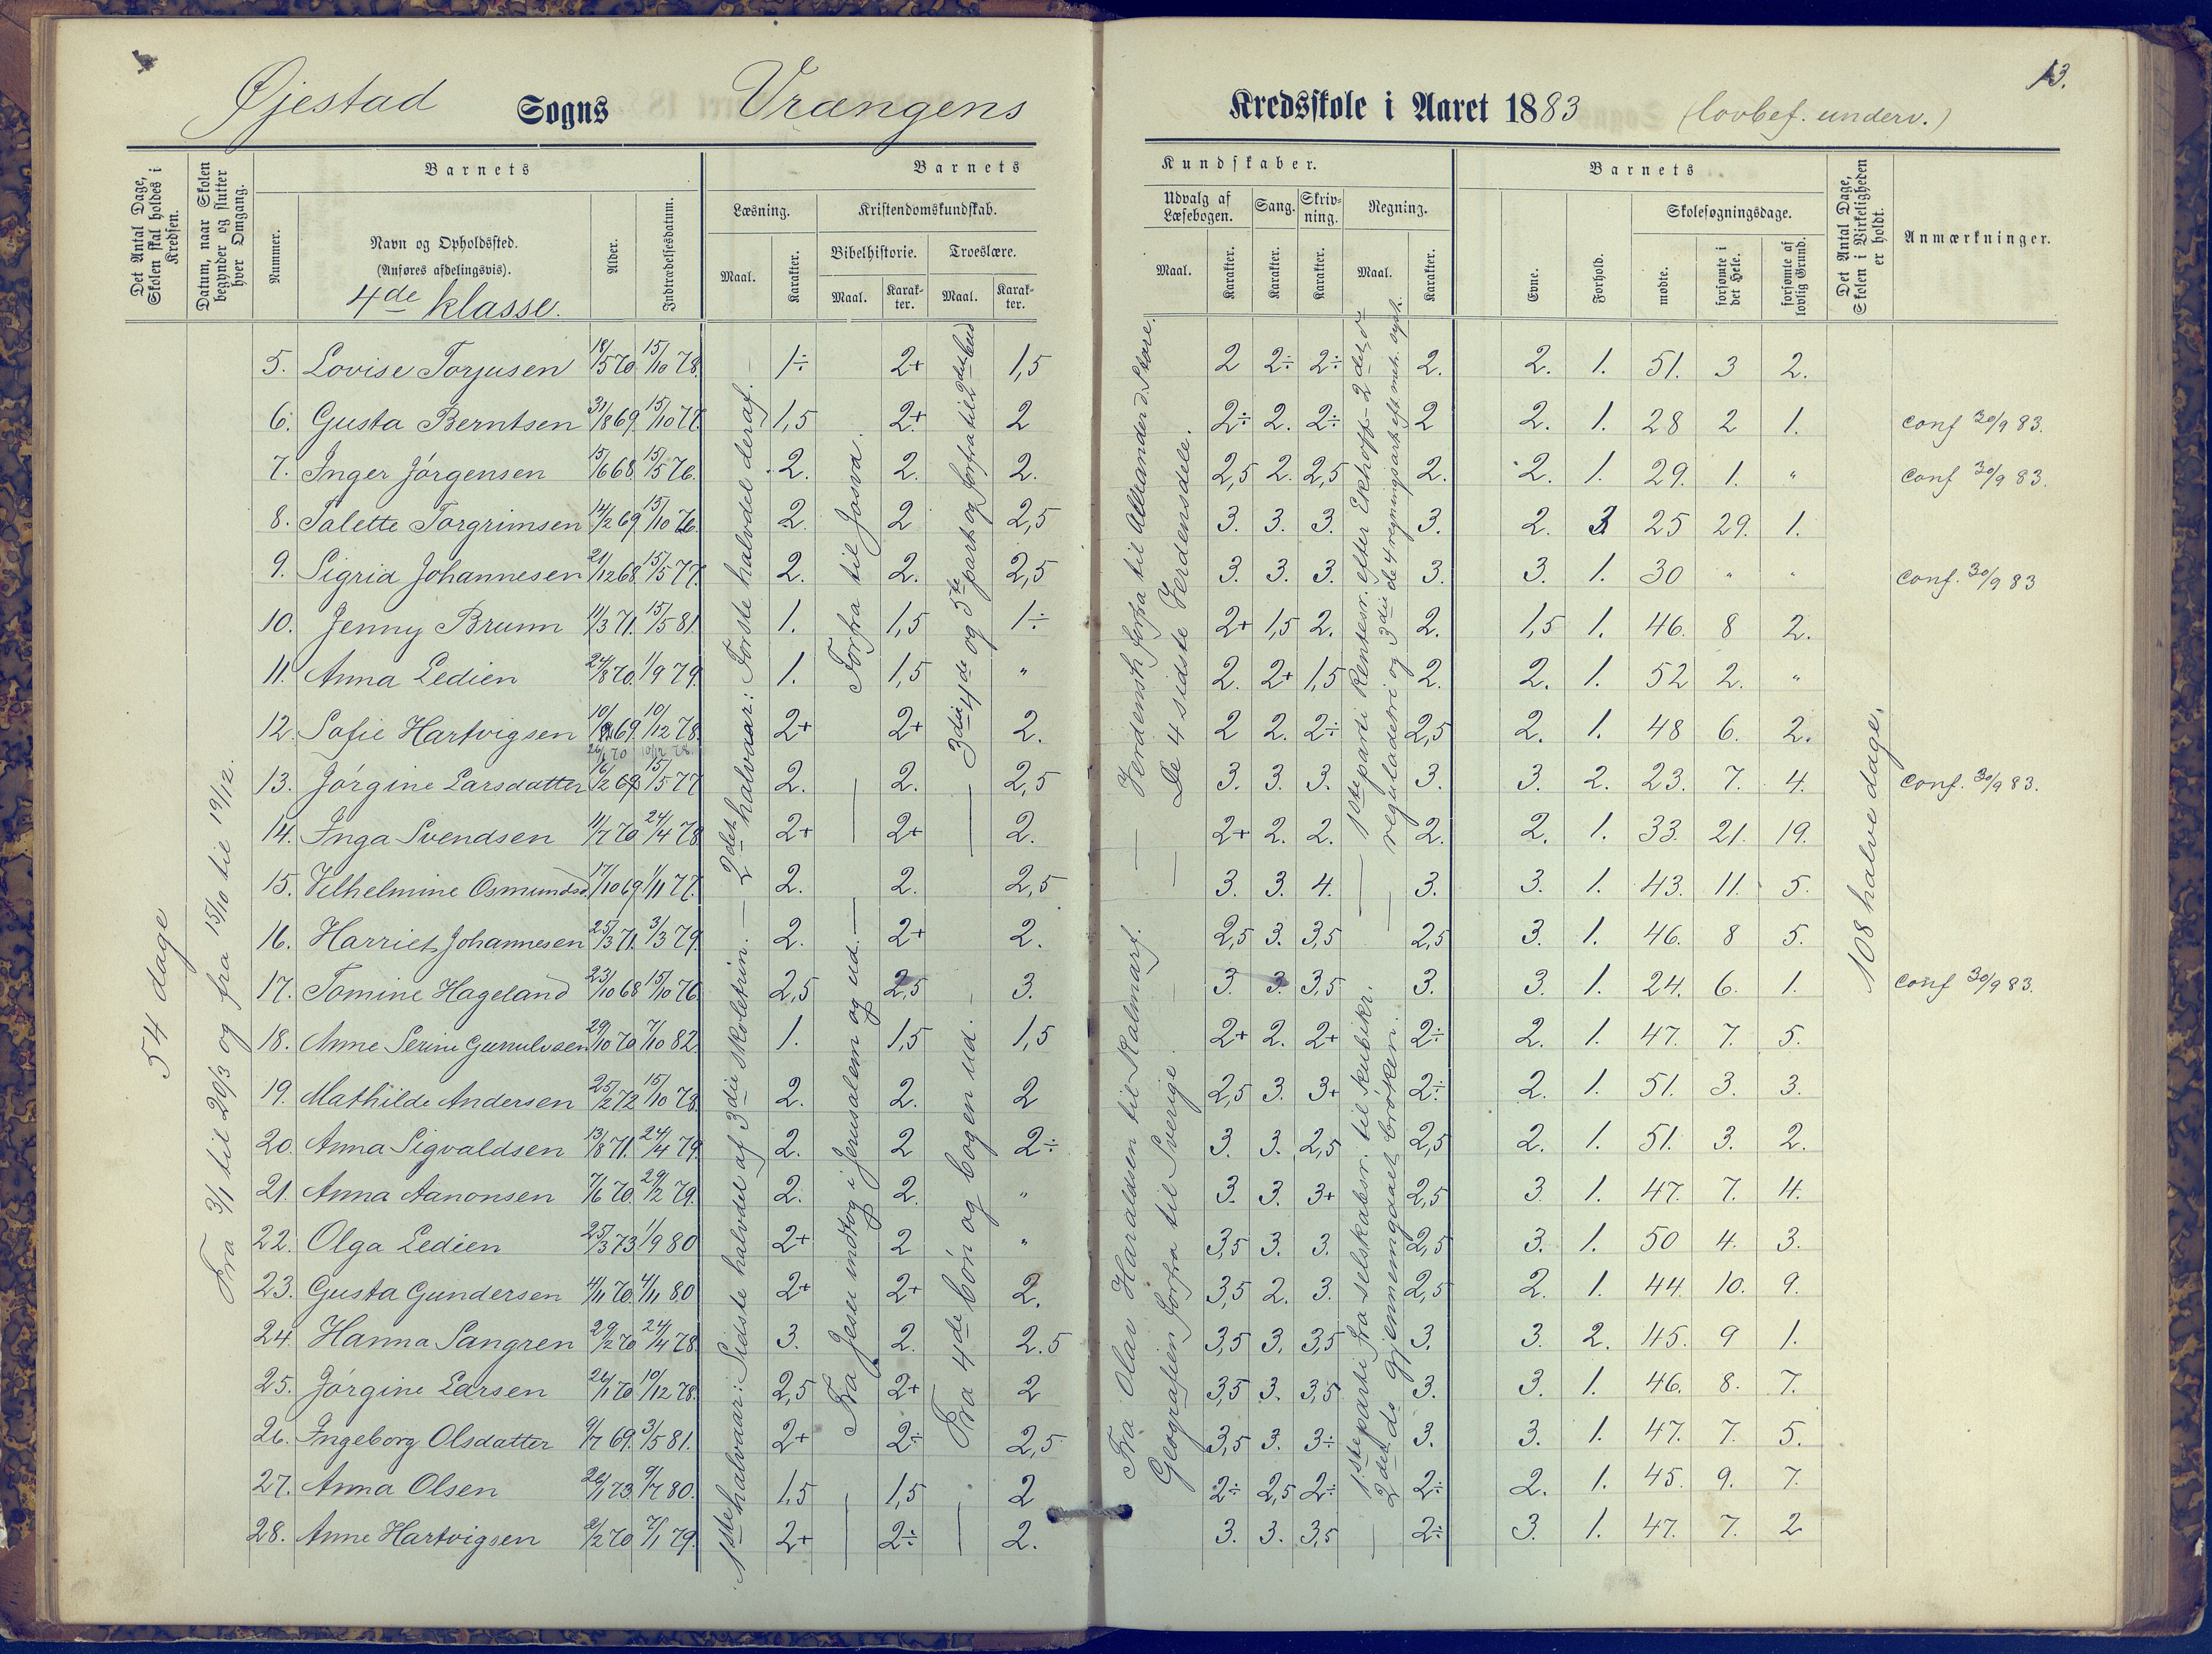 Øjestad Sogns Vrængens Kredsskole i Aaret 1883 (lovbef. underv.) 13.
Det Antal Dage, Skolen skal holdes i Kredsen.
Datum, naar Skolen begynder og slutter hver Omgang.
Barnets
Nummer.
Navn og Opholdssted.
(Anføres afdelingsvis).
4de klasse.
Alder.
Indtrædelsesdatum.
Barnets Kundskaber.
Læsning. Kristendomskundskab. Udvalg af Læsebogen. Sang. Skrivning. Regning.
Bibelhistorie. Troeslære.
Maal. Karakter. Maal. Karakter. Maal. Karakter. Maal. Karakter. Karakter. Karakter. Maal. Karakter.
Barnets
Evne. Forhold. Skolesøgningsdage.
mødte. forsømte i det Hele. forsømte af lovlig Grund.
Det Antal Dage, Skolen i Virkeligheden er holdt.
Anmærkninger.
54 dage
Fra 3/1 til 20/3 og fra 15/10 til 19/12.
1ste halvaar: Sidste halvdel af 3die skoletrin. — 2det halvaar: Første halvdel deraf.
Fra Jesu indtog i Jerusalem og ud. — Forfra til Josva.
Fra 4de bøn og bogen ud. 3die 4de og 5te part og forfra til 9det bud
Fra Olav Haraldsen til Kalmarf. — Verdensh. forfra til Alexander d. Store.
Geografien forfra til Sverige. — De 4 sidste Verdensdele.
1ste parti fra selskabsr. til kubikr. — 1ste parti Rentesr. efter Ekhoff — 2det do
2det do gjennemgaaet brøken. — reguladetri og 3die de 4 regningsart.
108 halve dage.
5. Lovise Torjusen 18/5 70 15/10 78. 1÷ 2+ 1,5 2 2÷ 2÷ 2. 2. 1. 51. 3 2.
6. Gusta Berntsen 31/8 69. 15/10 77. 1,5 2+ 2 2÷ 2. 2÷ 2 2. 1. 28 2 1. conf 30/9 83.
7. Inger Jørgensen 15/6 68. 15/5 76. 2. 2. 2. 2,5 2. 2,5 2. 2. 1. 29. 1. " conf 30/9 83.
8. Talette Torgrimsen 14/2 69 15/10 76. 2. 2 2,5 3. 3. 3. 3. 2. 3 25 29. 1.
9. Sigrid Johannesen 21/12 68 15/5 77. 2. 2. 2,5 3. 3. 3. 3. 3. 1. 30 " " conf. 30/9 83
10. Jenny Brunn 11/3 71. 15/5 81. 1. 1,5 1÷ 2+ 1,5 2. 2. 1,5 1. 46. 8 2.
11. Anna Ledien 24/8 70. 1/9 79. 1. 1,5 " 2. 2+ 1,5 2. 2. 1. 52 2. "
12. Sofie Hartvigsen 69. 10/12 78. 2+ 2+ 2. 2 2. 2÷ 2,5 2. 1. 48 6. 2.
26/1 70 10/12 78.
13. Jørgine Larsdatter 16/2 69 15/5 77 2. 2. 2,5 3. 3. 3. 3. 3. 2. 23. 7. 4. conf. 30/9 83.
14. Inga Svendsen 11/7 70 24/4 78 2+ 2+ 2. 2+ 2. 2. 2. 2. 1. 33. 21. 19.
15. Vilhelmine Osmundsd. 17/10 69 1/11 77. 2. 2. 2,5 3. 3. 4. 3. 3. 1. 43. 11. 5.
16. Harriet Johannesen 25/3 71. 3/3 79. 2. 2+ 2. 2,5 3. 3,5 2,5 3. 1. 46. 8 5.
17. Tomine Hageland 23/10 68 15/10 76 2,5 2,5 3. 3. 3. 3,5 3. 3. 1. 24. 6. 1. conf 30/9 83.
18. Anne Serine Gunnulvsen 29/10 70 7/10 82. 1. 1,5 1,5 2+ 2. 2+ 2÷ 2. 1. 47. 7. 5.
19. Mathilde Andersen 25/2 72 15/10 78. 2. 2. 2 2,5 3. 3+ 2÷ 2. 1. 51. 3. 3.
20. Anna Sigvaldsen 13/8 71. 24/4 79. 2. 2 2÷ 3. 3. 2,5 2,5 2. 1. 51. 3. 2.
21. Anna Aanonsen 7/6 70. 29/2 79. 2. 2. " 3. 3. 3+ 2,5 3. 1. 47. 7. 4.
22. Olga Ledien 25/3 73 1/9 80 2+ 2 " 3,5 3. 3. 2,5 3. 1. 50 4. 3.
23. Gusta Gundersen 4/11 70. 4/11 80 2+ 2+ 2. 3,5 2. 3. 2,5 2. 1. 44. 10. 9.
24. Hanna Sangren 29/2 70 24/4 78. 3. 2. 2.5 3,5 3. 3,5 3. 3. 2. 45. 9 1.
25. Jørgine Larsen 26/1 70 10/12 78. 2,5 2+ 2 3,5 3. 3,5 3. 3. 1. 46. 8. 7.
26. Ingeborg Olsdatter 9/7 69. 3/5 81. 2+ 2÷ 2,5 3,5 3. 3÷ 3. 3. 1. 47. 7. 5.
27. Anna Olsen 26/1 73. 9/7 80. 1,5 1,5 2 2÷ 2,5 2÷ 2÷ 2. 1. 45. 9. 7.
28. Anne Hartvigsen 2/2 70 7/1 79. 2+ 2÷ 2. 3. 3. 3,5 2÷ 3. 1. 47. 7. 2